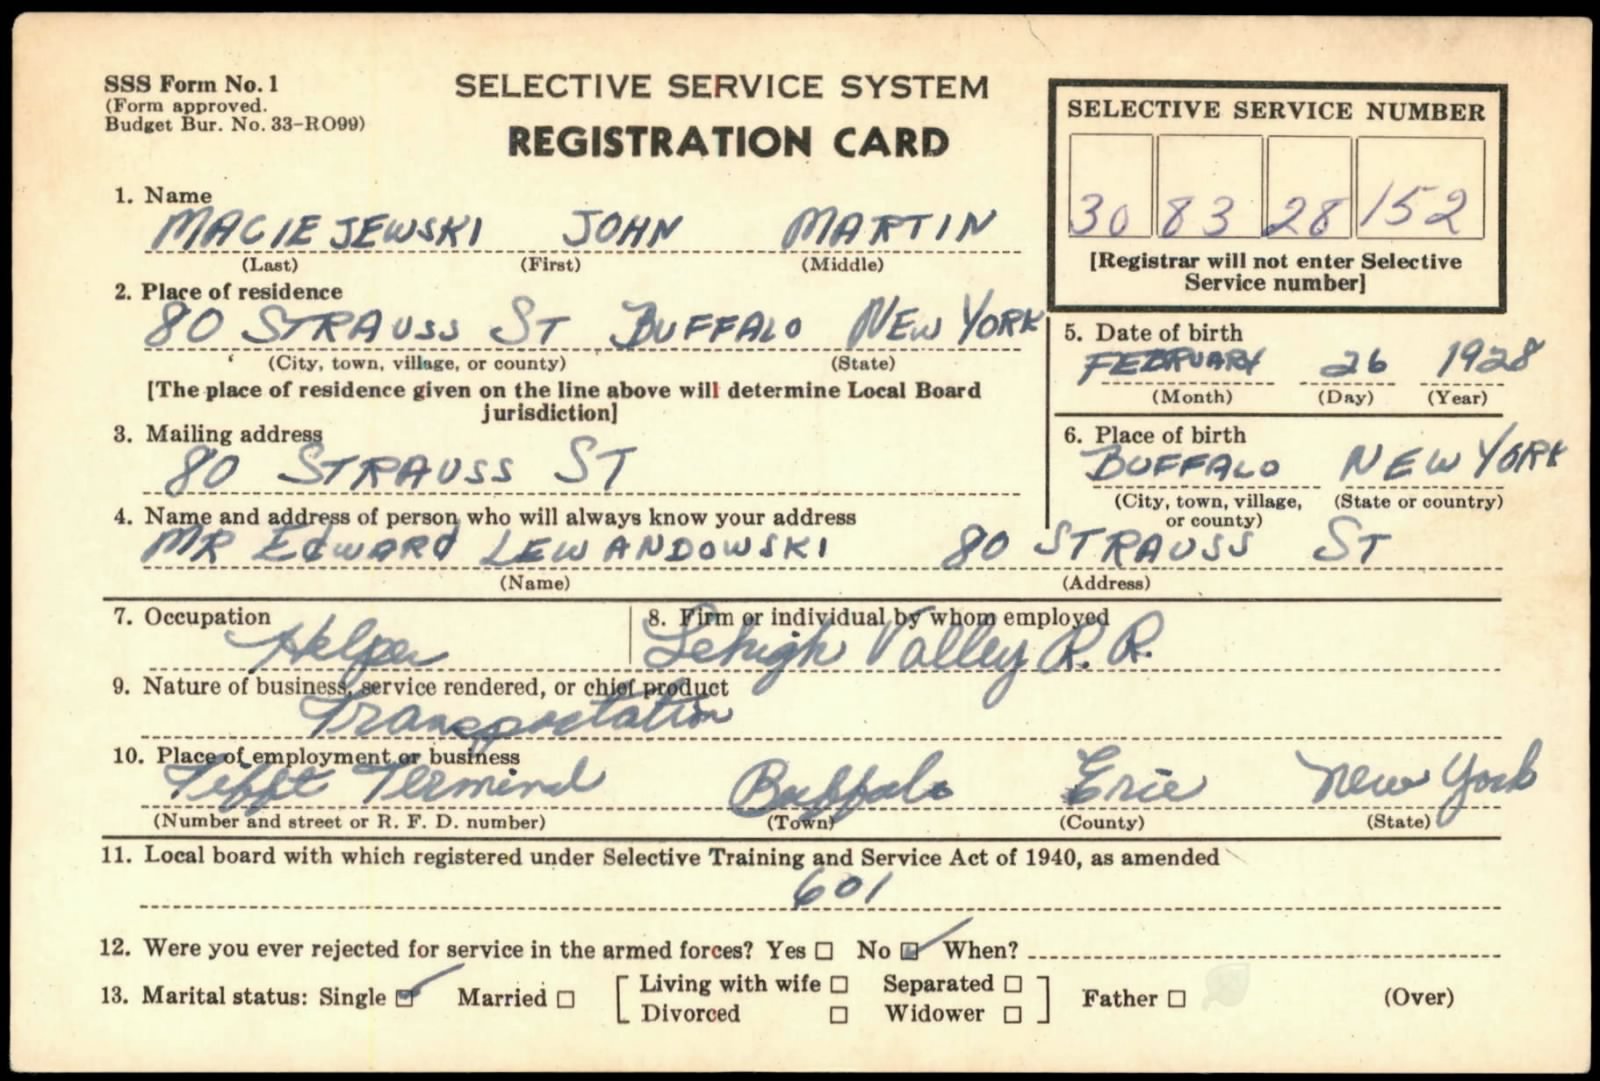 SSS Form No. 1
(Form approved.
Budget Bur. No. 33-RO99)
SELECTIVE SERVICE SYSTEM
REGISTRATION CARD
SELECTIVE SERVICE NUMBER
30 83 28 152
[Registrar will not enter Selective
Service number]
1. Name
MACIEJEWSKI JOHN MARTIN
(Last) (First) (Middle)
2. Place of residence
80 STRAUSS ST BUFFALO NEW YORK
(City, town, village, or county) (State)
[The place of residence given on the line above will determine Local Board
jurisdiction]
3. Mailing address
80 STRAUSS ST
5. Date of birth
FEBRUARY 26 1928
(Month) (Day) (Year)
6. Place of birth
BUFFALO NEW YORK
(City, town, village, (State or country)
or county)
4. Name and address of person who will always know your address
MR EDWARD LEWANDOWSKI 80 STRAUSS ST
(Name) (Address)
7. Occupation 8. Firm or individual by whom employed
Helper Lehigh Valley R.R.
9. Nature of business, service rendered, or chief product
Transportation
10. Place of employment or business
Tifft Terminal Buffalo Erie New York
(Number and street or R. F. D. number) (Town) (County) (State)
11. Local board with which registered under Selective Training and Service Act of 1940, as amended
601
12. Were you ever rejected for service in the armed forces? Yes ☐ No ☑ When?
13. Marital status: Single ☑ Married ☐ [Living with wife ☐ Separated ☐] Father ☐ (Over)
Divorced ☐ Widower ☐